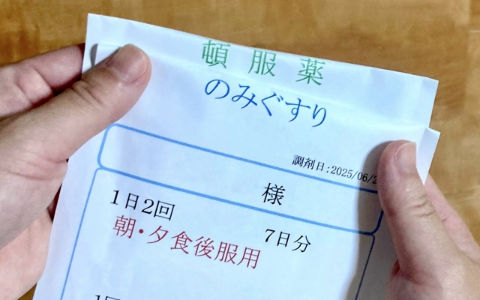 頓服薬
のみぐすり
調剤日:2025/06/2
様
1日2回 7日分
朝・夕食後服用
1回